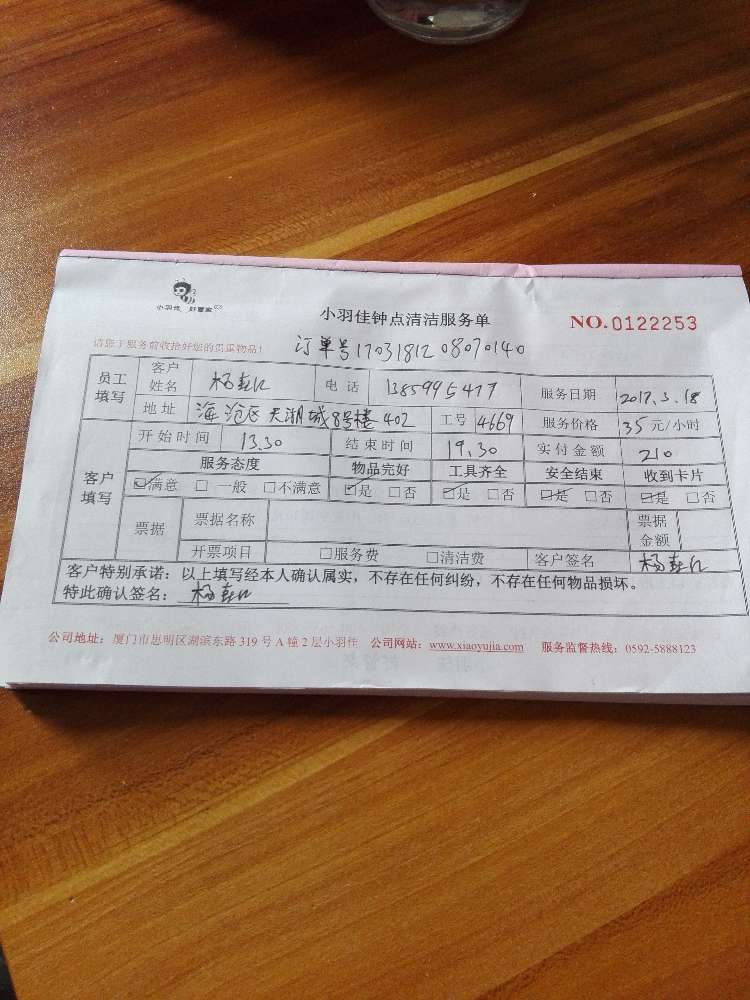 小羽佳 好管家
小羽佳钟点清洁服务单
NO.0122253
请您于服务前收拾好您的贵重物品!
订单号17031812 08070140
员工填写 客户姓名 杨 电话 服务日期 2017.3.18
地址 海沧区天湖城8号楼402 工号 4669 服务价格 35元/小时
客户填写 开始时间 13.30 结束时间 19.30 实付金额 210
服务态度 物品完好 工具齐全 安全结束 收到卡片
☑满意 □一般 □不满意 ☑是 □否 ☑是 □否 ☑是 □否 ☑是 □否
票据 票据名称 票据金额
开票项目 □服务费 □清洁费 客户签名 杨
客户特别承诺:以上填写经本人确认属实,不存在任何纠纷,不存在任何物品损坏。
特此确认签名: 杨
公司地址:厦门市思明区湖滨东路319号A幢2层小羽佳 公司网站:www.xiaoyujia.com 服务监督热线:0592-5888123